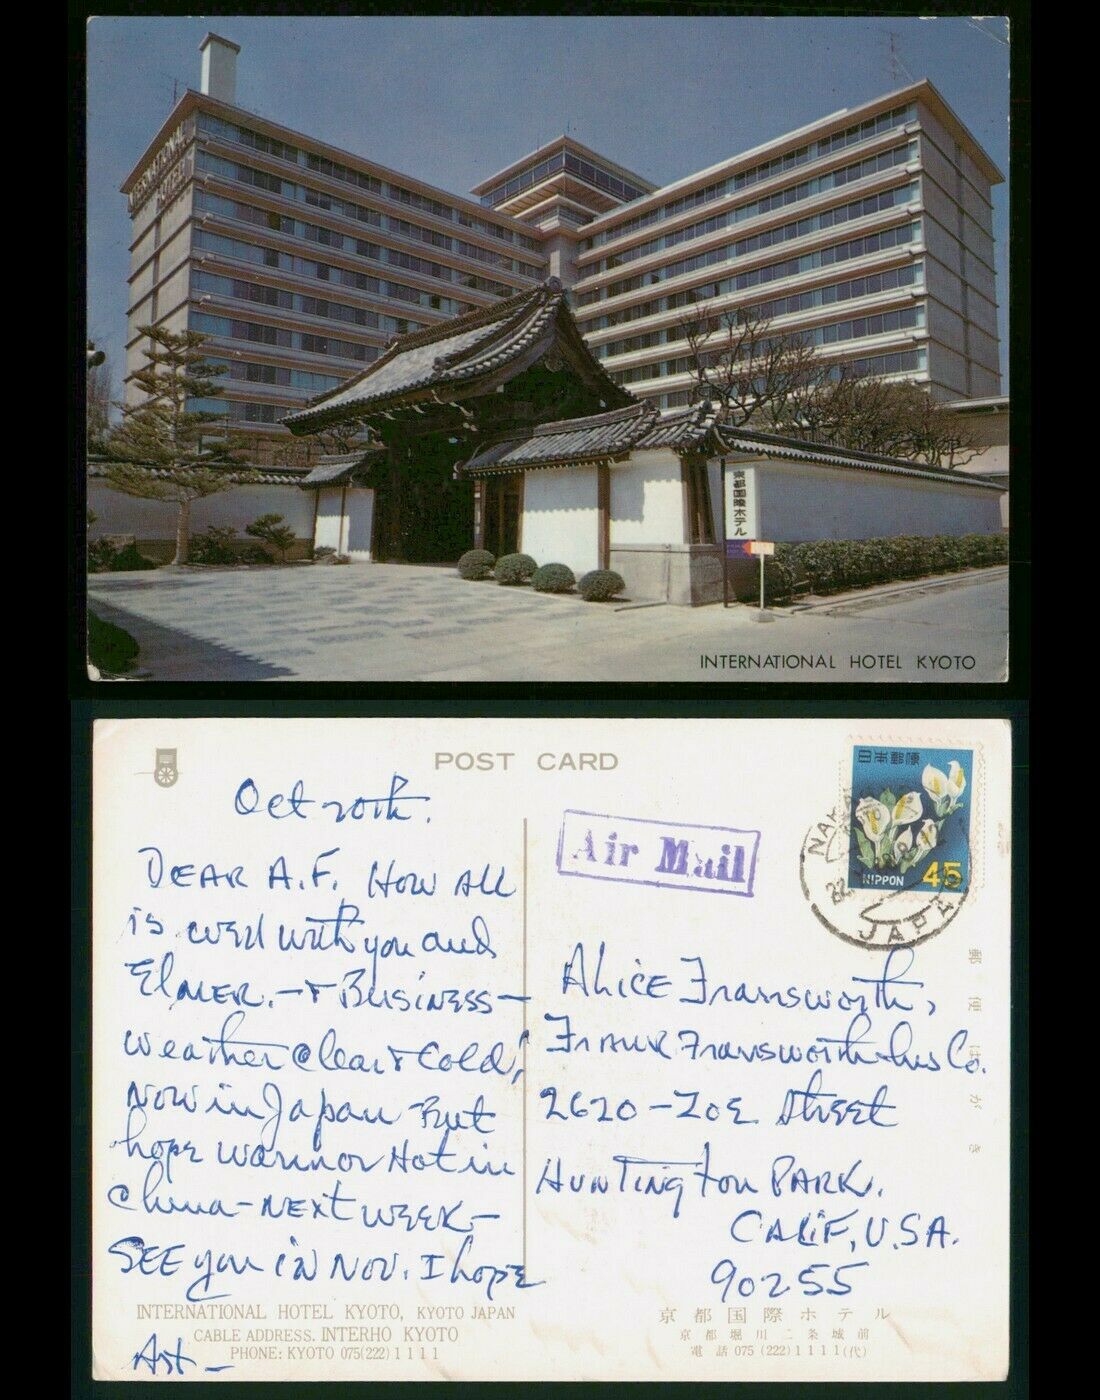 INTERNATIONAL HOTEL KYOTO
京都国際ホテル
INTERNATIONAL HOTEL KYOTO
POST CARD
Oct 20th.
DEAR A.F. HOW ALL
is well with you and
ELMER. — & BUSINESS —
weather clear & cold,
NOW in JAPAN But
hope warm or Hot in
China — NEXT WEEK —
SEE you in NOV. I hope
Art —
INTERNATIONAL HOTEL KYOTO, KYOTO JAPAN
CABLE ADDRESS. INTERHO KYOTO
PHONE: KYOTO 075(222)1111
Air Mail
日本郵便
NIPPON 45
JAPAN
郵便はがき
ALICE Fransworth,
Frank Fransworth Ins Co.
2620 — ZOE Street
HUNTINGTON PARK.
CALIF, U.S.A.
90255
京都国際ホテル
京都堀川二条城前
電話 075(222)1111(代)